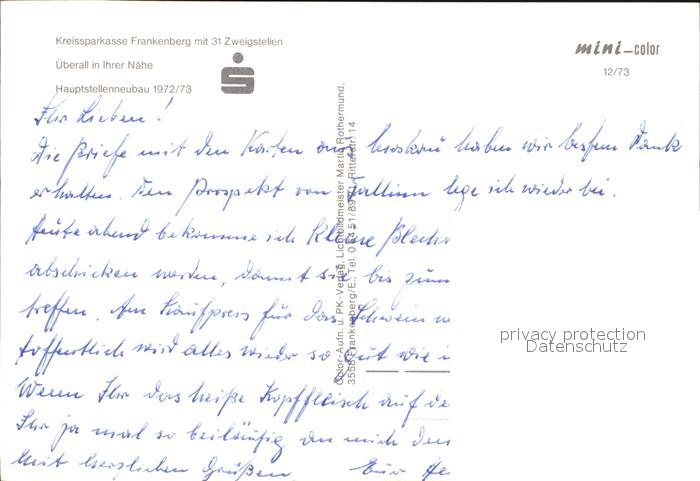 Kreissparkasse Frankenberg mit 31 Zweigstellen
Überall in Ihrer Nähe
Hauptstellenneubau 1972/73
mini-color
12/73
Ihr Lieben!
Die Briefe mit den Karten aus haben wir bestem Dank
erhalten. Den Prospekt von Tallinn lege ich wieder bei.
Heute abend bekomme ich kleine
abschicken werden, damit sie bis zum
treffen. Am Kaufpreis für das Schwein
Hoffentlich wird alles wieder so gut wie
Wenn Ihr das heiße Kopffleisch auf
Ihr ja mal so beiläufig an mich
Mit herzlichen Grüßen Eur
Color-Aufn. u. PK-Verlag, Lichtbildmeister Martin Rothermund,
3558 Frankenberg/E., Tel. Ritterstr. 14
privacy protection
Datenschutz